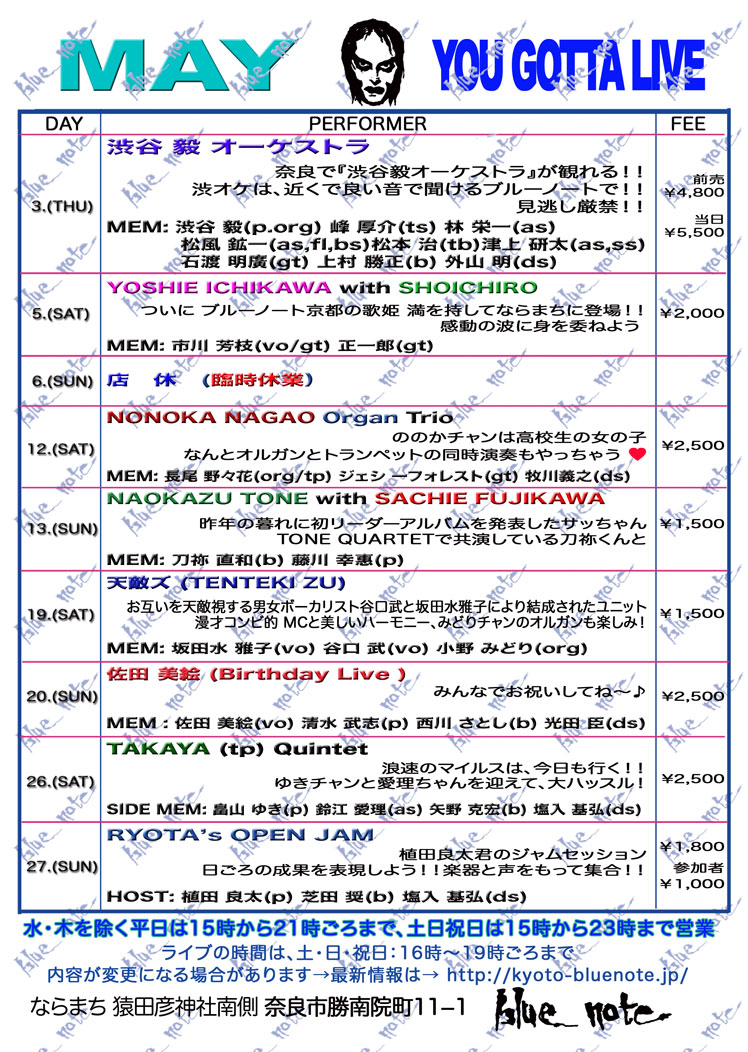 MAY YOU GOTTA LIVE
DAY PERFORMER FEE
3.(THU)
渋谷 毅 オーケストラ
奈良で『渋谷毅オーケストラ』が観れる!!
渋オケは、近くで良い音で聞けるブルーノートで!!
見逃し厳禁!!
MEM: 渋谷 毅(p.org) 峰 厚介(ts) 林 栄一(as)
松風 鉱一(as,fl,bs)松本 治(tb)津上 研太(as,ss)
石渡 明廣(gt) 上村 勝正(b) 外山 明(ds)
前売
¥4,800
当日
¥5,500
5.(SAT)
YOSHIE ICHIKAWA with SHOICHIRO
ついに ブルーノート京都の歌姫 満を持してならまちに登場!!
感動の波に身を委ねよう
MEM: 市川 芳枝(vo/gt) 正一郎(gt)
¥2,000
6.(SUN)
店 休 (臨時休業)
12.(SAT)
NONOKA NAGAO Organ Trio
ののかチャンは高校生の女の子
なんとオルガンとトランペットの同時演奏もやっちゃう ♥
MEM: 長尾 野々花(org/tp) ジェシーフォレスト(gt) 牧川義之(ds)
¥2,500
13.(SUN)
NAOKAZU TONE with SACHIE FUJIKAWA
昨年の暮れに初リーダーアルバムを発表したサッちゃん
TONE QUARTETで共演している刀祢くんと
MEM: 刀祢 直和(b) 藤川 幸惠(p)
¥1,500
19.(SAT)
天敵ズ (TENTEKI ZU)
お互いを天敵視する男女ボーカリスト谷口武と坂田水雅子により結成されたユニット
漫才コンビ的 MCと美しいハーモニー、みどりチャンのオルガンも楽しみ!
MEM: 坂田水 雅子(vo) 谷口 武(vo) 小野 みどり(org)
¥1,500
20.(SUN)
佐田 美絵 (Birthday Live )
みんなでお祝いしてね〜♪
MEM : 佐田 美絵(vo) 清水 武志(p) 西川 さとし(b) 光田 臣(ds)
¥2,500
26.(SAT)
TAKAYA (tp) Quintet
浪速のマイルスは、今日も行く!!
ゆきチャンと愛理ちゃんを迎えて、大ハッスル!
SIDE MEM: 畠山 ゆき(p) 鈴江 愛理(as) 矢野 克宏(b) 塩入 基弘(ds)
¥2,500
27.(SUN)
RYOTA's OPEN JAM
植田良太君のジャムセッション
日ごろの成果を表現しよう!!楽器と声をもって集合!!
HOST: 植田 良太(p) 芝田 奨(b) 塩入 基弘(ds)
¥1,800
参加者
¥1,000
水・木を除く平日は15時から21時ごろまで、土日祝日は15時から23時まで営業
ライブの時間は、土・日・祝日:16時〜19時ごろまで
内容が変更になる場合があります→最新情報は→ http://kyoto-bluenote.jp/
ならまち 猿田彦神社南側 奈良市勝南院町11−1 blue note